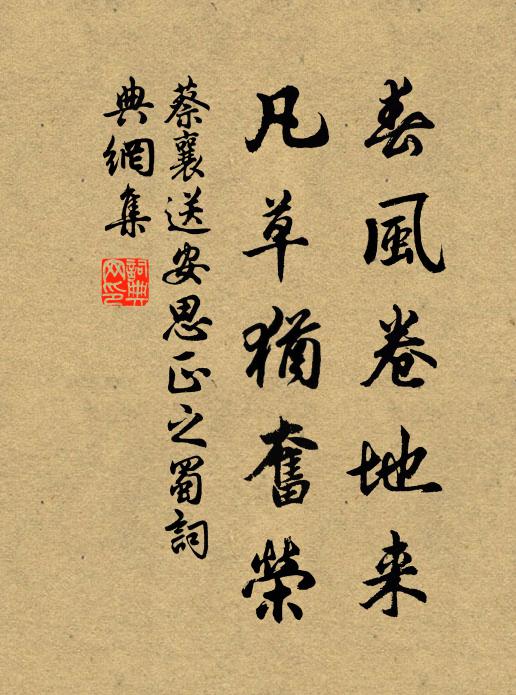 春風卷地来
凡草猶奮榮
蔡襄送安思正之蜀詞
典網集
詞典
网印